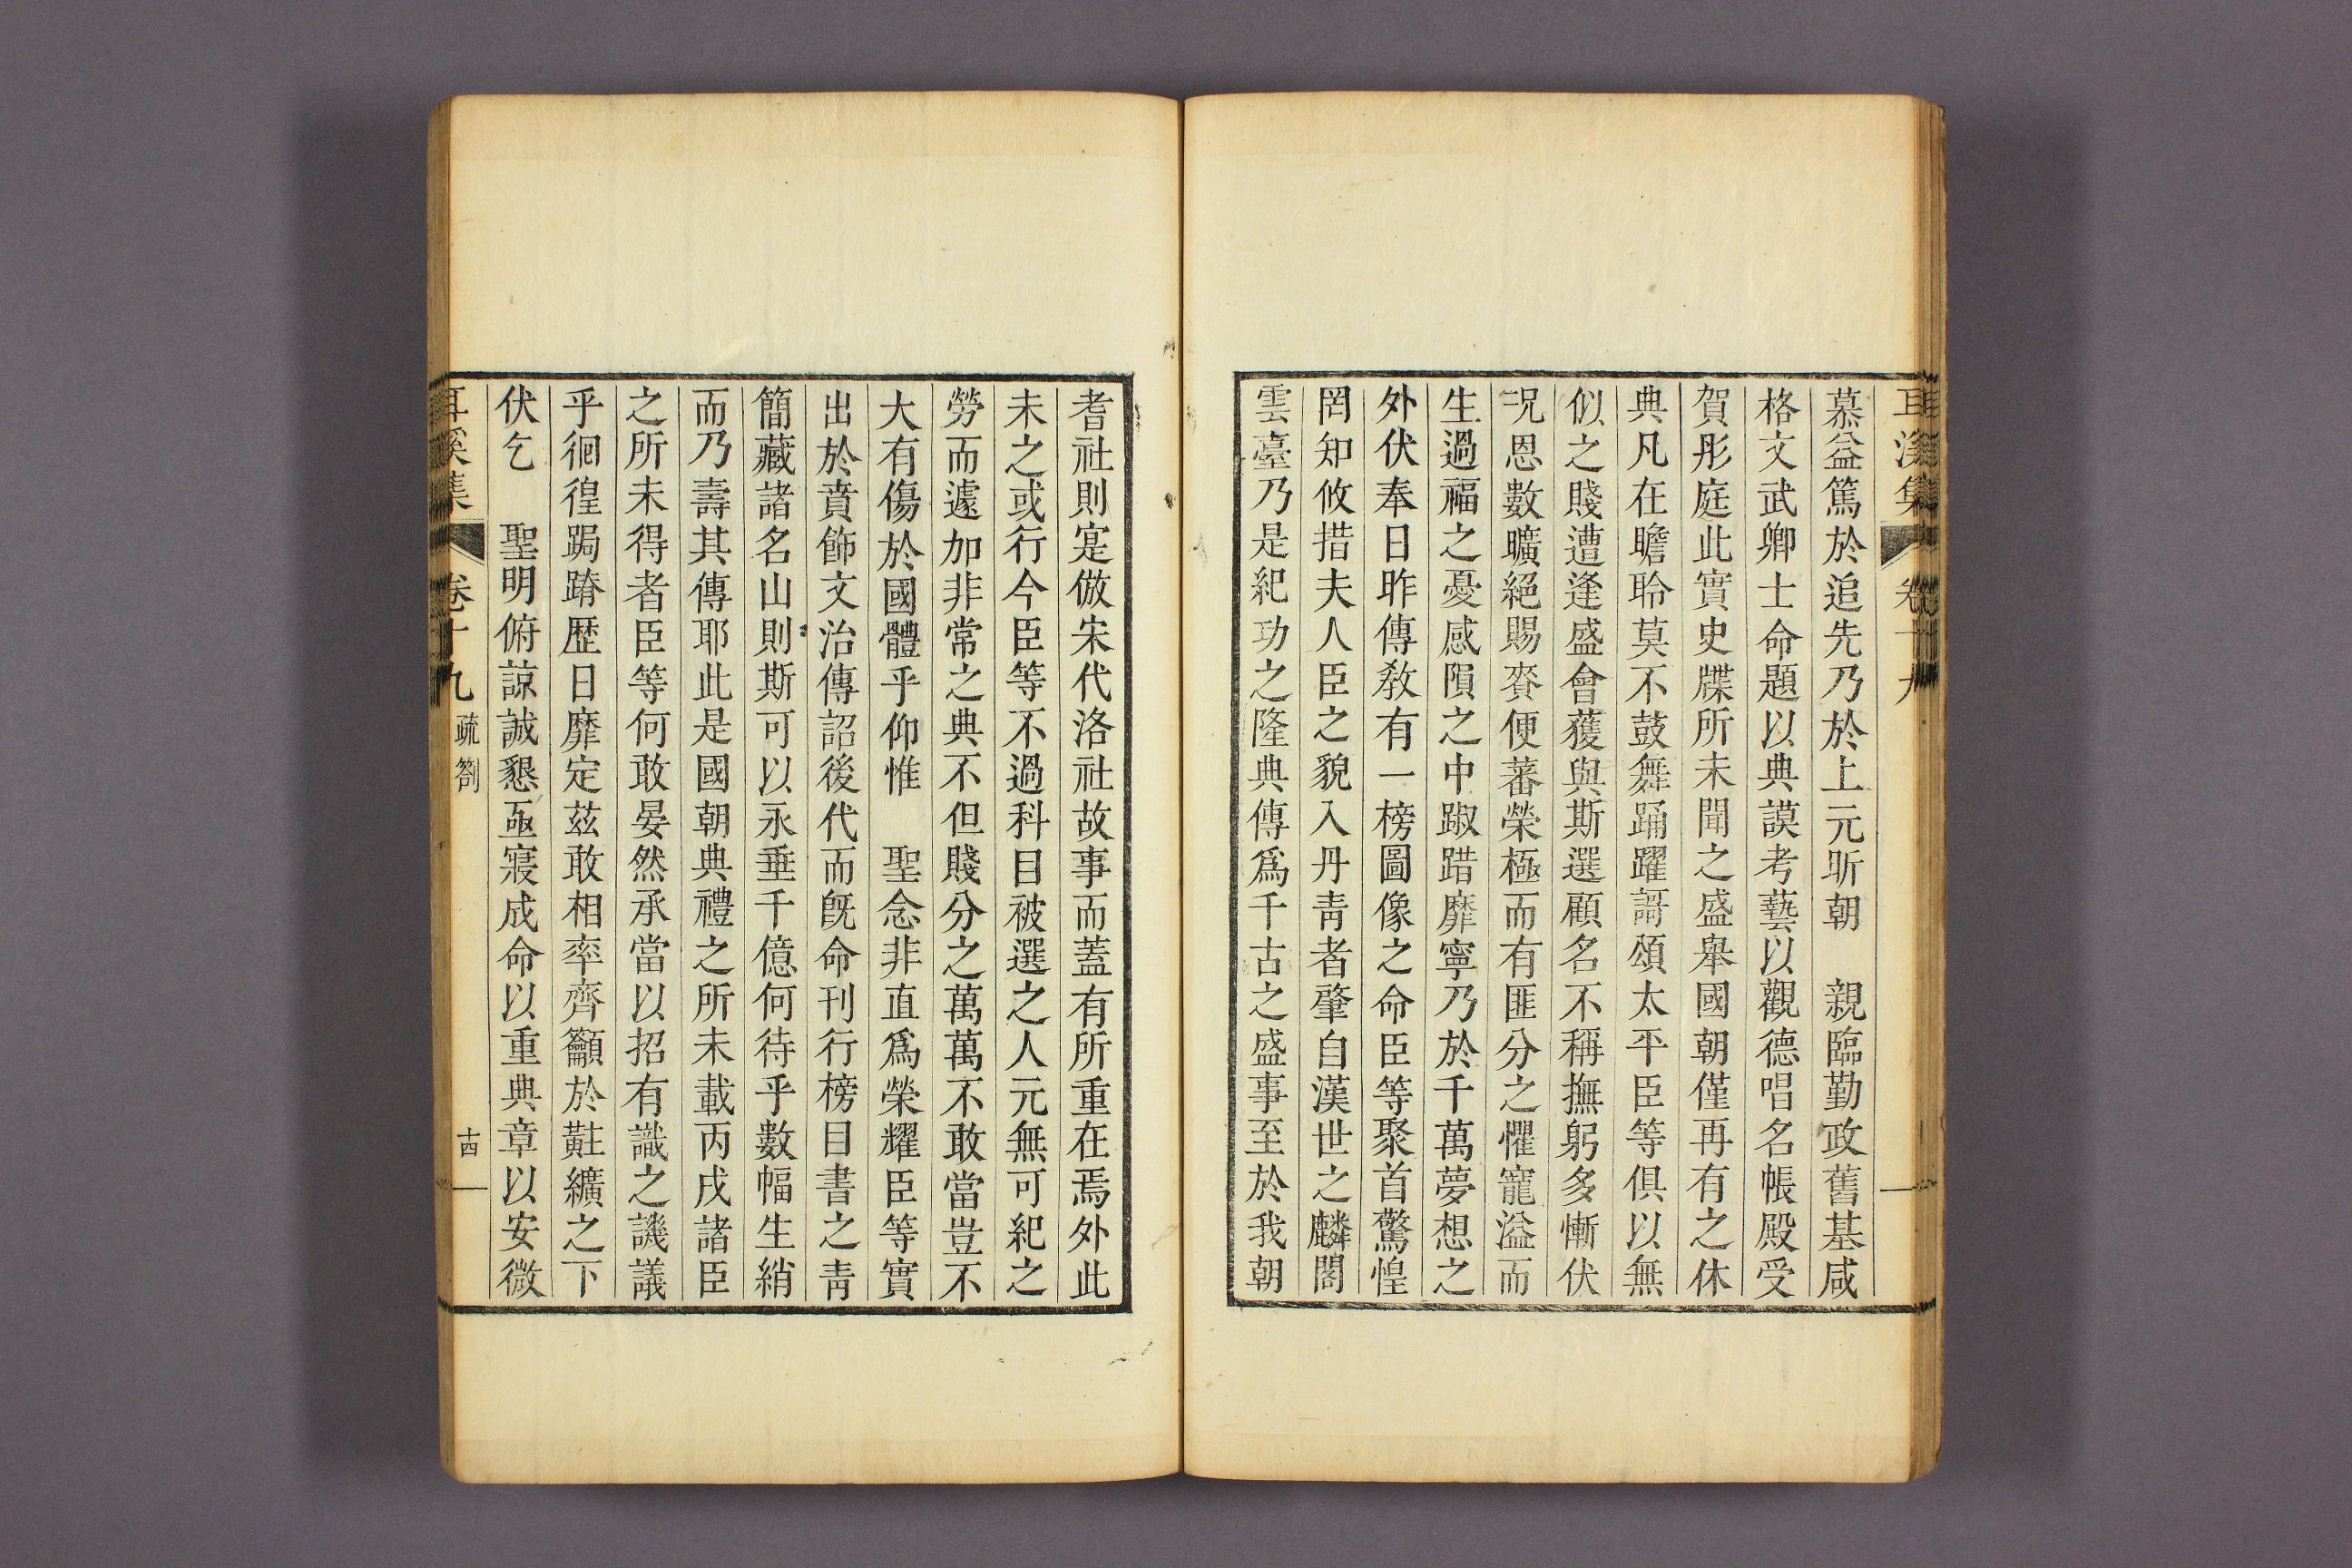 耳溪集 卷十九
慕益篤於追先乃於上元昕朝 親臨勤政舊基咸
格文武卿士命題以典謨考藝以觀德唱名帳殿受
賀彤庭此實史牒所未聞之盛擧國朝僅再有之休
典凡在瞻聆莫不鼓舞踊躍謌頌太平臣等俱以無
似之賤遭逢盛會獲與斯選顧名不稱撫躬多慚伏
况恩數曠絕賜賚便蕃榮極而有匪分之懼寵溢而
生過福之憂感隕之中踧踖靡寧乃於千萬夢想之
外伏奉日昨傳敎有一榜圖像之命臣等聚首驚惶
罔知攸措夫人臣之貌入丹靑者肇自漢世之麟閣
雲臺乃是紀功之隆典傳爲千古之盛事至於我朝
耆社則寔倣宋代洛社故事而蓋有所重在焉外此
未之或行今臣等不過科目被選之人元無可紀之
勞而遽加非常之典不但賤分之萬萬不敢當豈不
大有傷於國體乎仰惟 聖念非直爲榮耀臣等實
出於賁飾文治傳詔後代而旣命刊行榜目書之靑
簡藏諸名山則斯可以永垂千億何待乎數幅生綃
而乃壽其傳耶此是國朝典禮之所未載丙戌諸臣
之所未得者臣等何敢晏然承當以招有識之譏議
乎徊徨跼蹐歷日靡定茲敢相率齊籲於黈纊之下
伏乞 聖明俯諒誠懇亟寢成命以重典章以安微
耳溪集 卷十九 疏箚 十四